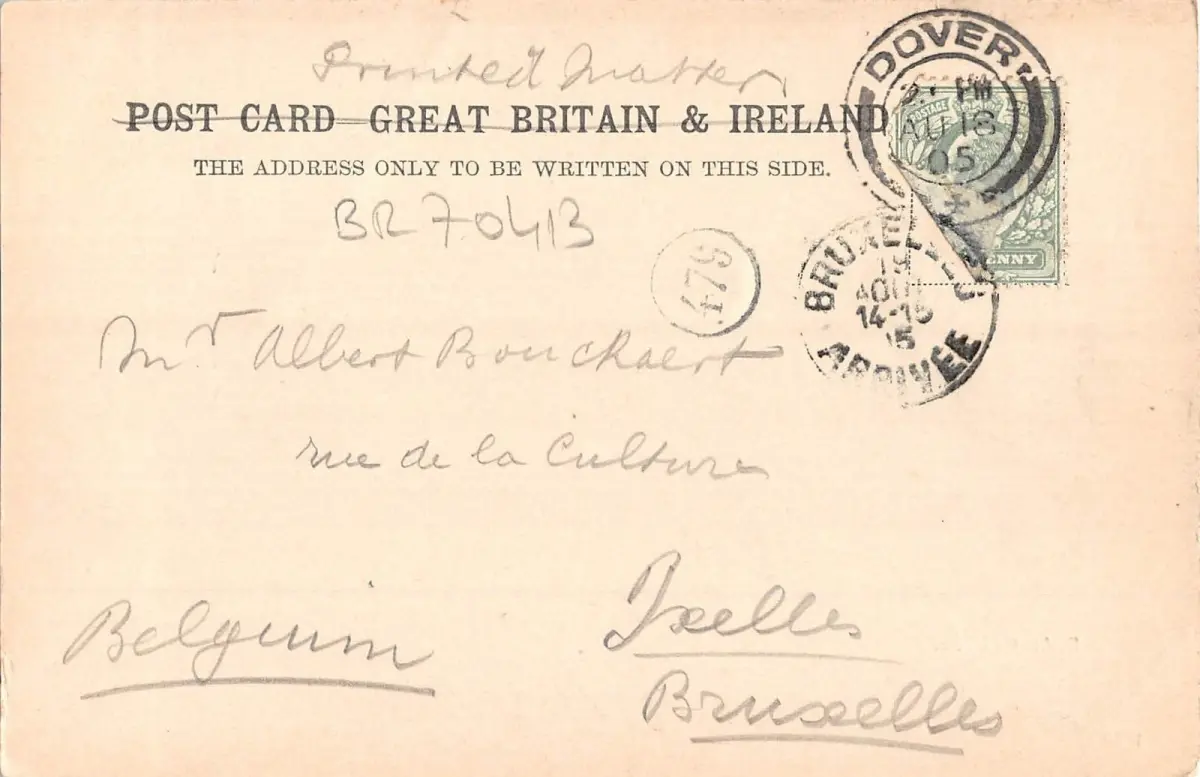 Printed Matter
POST CARD—GREAT BRITAIN & IRELAND
THE ADDRESS ONLY TO BE WRITTEN ON THIS SIDE.
BR7.04B
DOVER
PM
AU 18
05
POSTAGE
ENNY
BRUXELLES
AOUT
14-15
ARRIVEE
479
Mr Albert Bouckaert
rue de la Culture
Ixelles
Belgium
Bruxelles